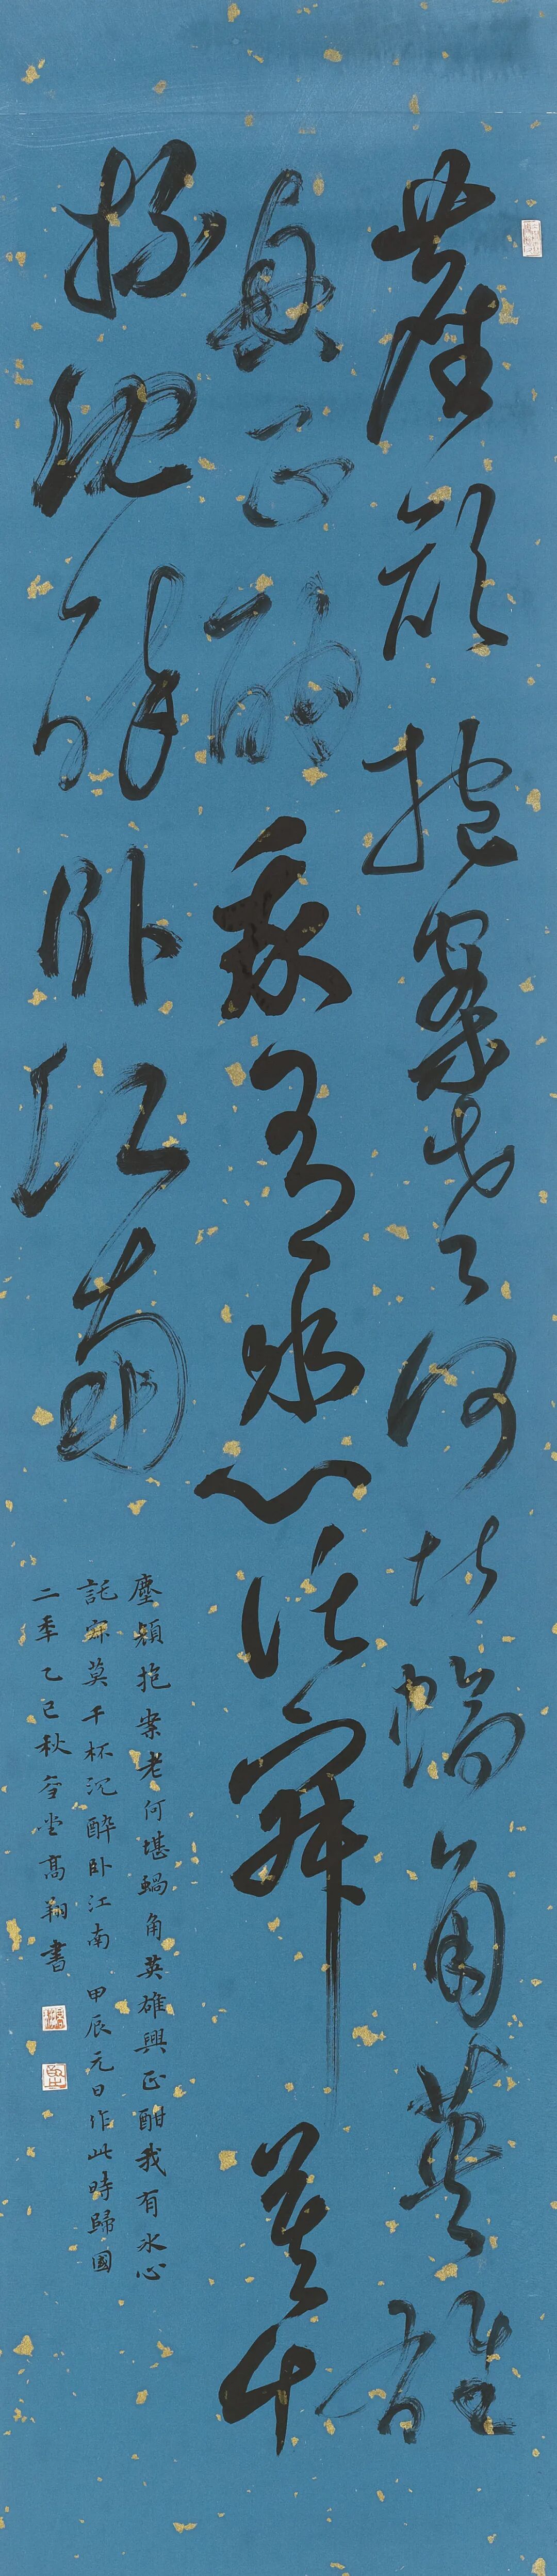 塵顏抱案老何堪蝸角英雄
興正酣我有冰心託寂莫千
杯沉醉臥江南
塵顏抱案老何堪蝸角英雄興正酣我有冰心
託寂莫千杯沉醉臥江南 甲辰元日作此時歸國
二季乙巳秋 堂高翔書